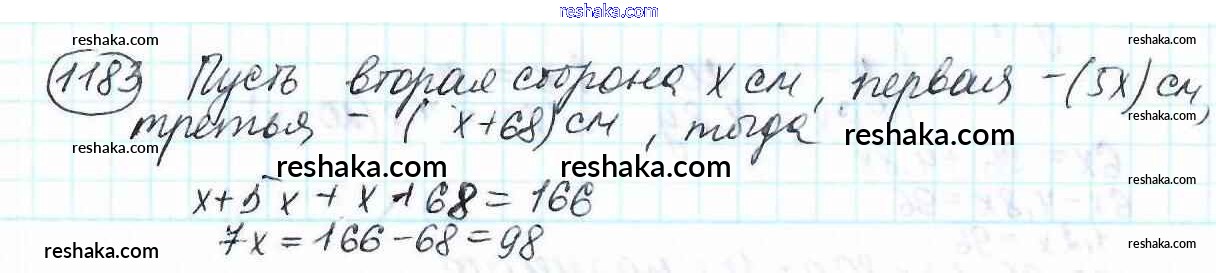 reshaka.com
reshaka.com reshaka.com reshaka.com
1183 Пусть вторая сторона x см, первая – (5x) см,
reshaka.com reshaka.com
третья – (x+68) см, тогда reshaka.com
reshaka.com reshaka.com
reshaka.com
x+5x+x+68=166
7x=166-68=98
reshaka.com reshaka.com